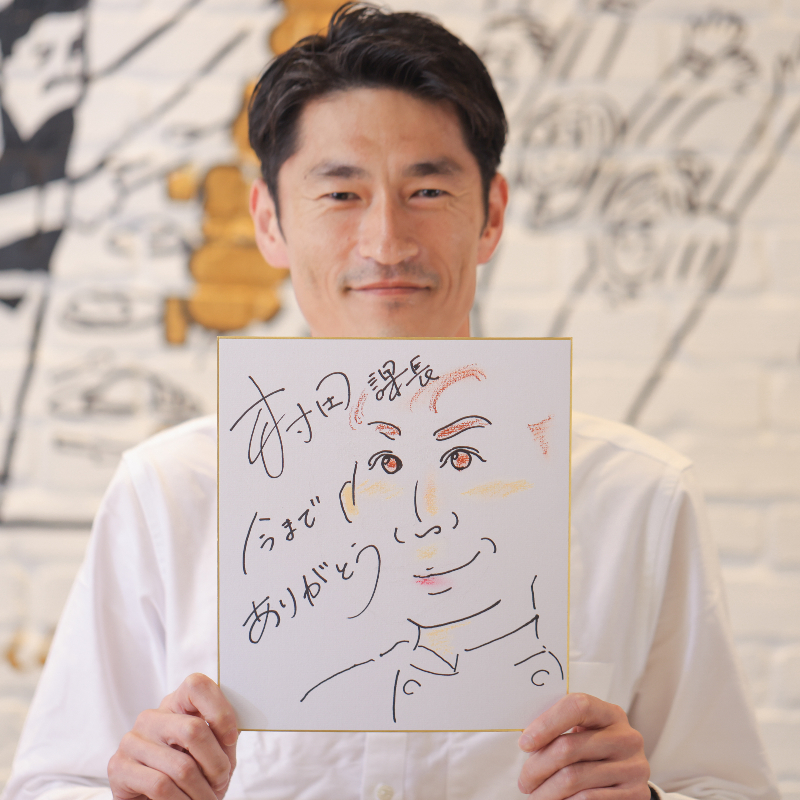 村田 課長
今まで
ありがとう